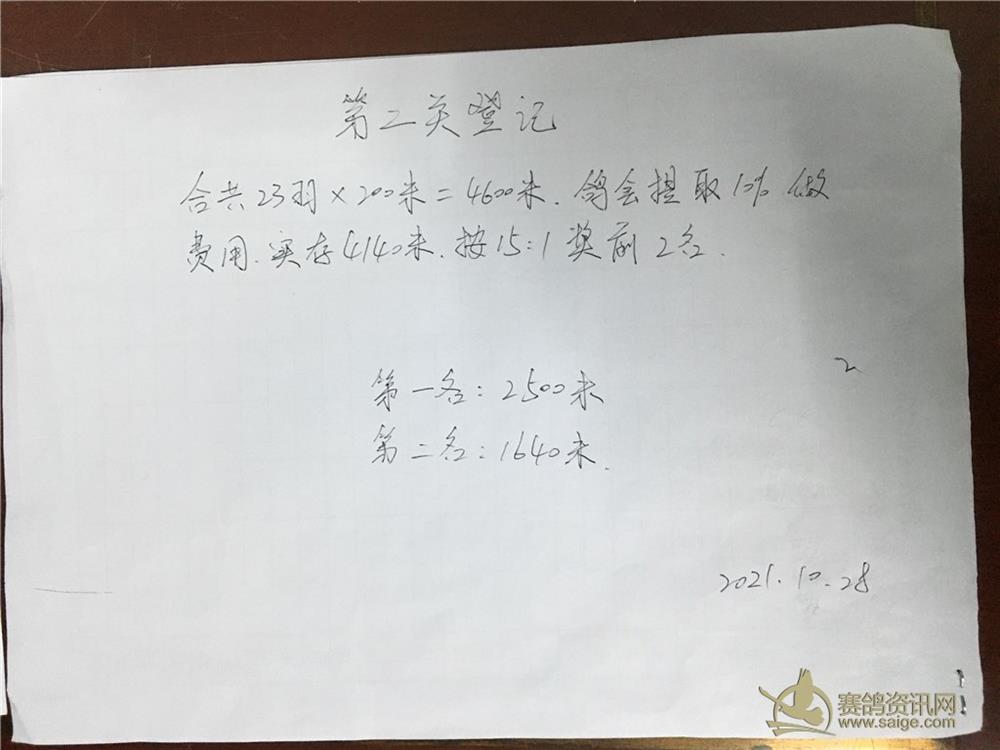 第二关登记
合共23羽×200米=4600米.鸽会提取10%做
费用.实存4140米.按15:1奖前2名.
2
第一名:2500米
第二名:1640米.
2021.10.28
赛鸽资讯网
www.saige.com